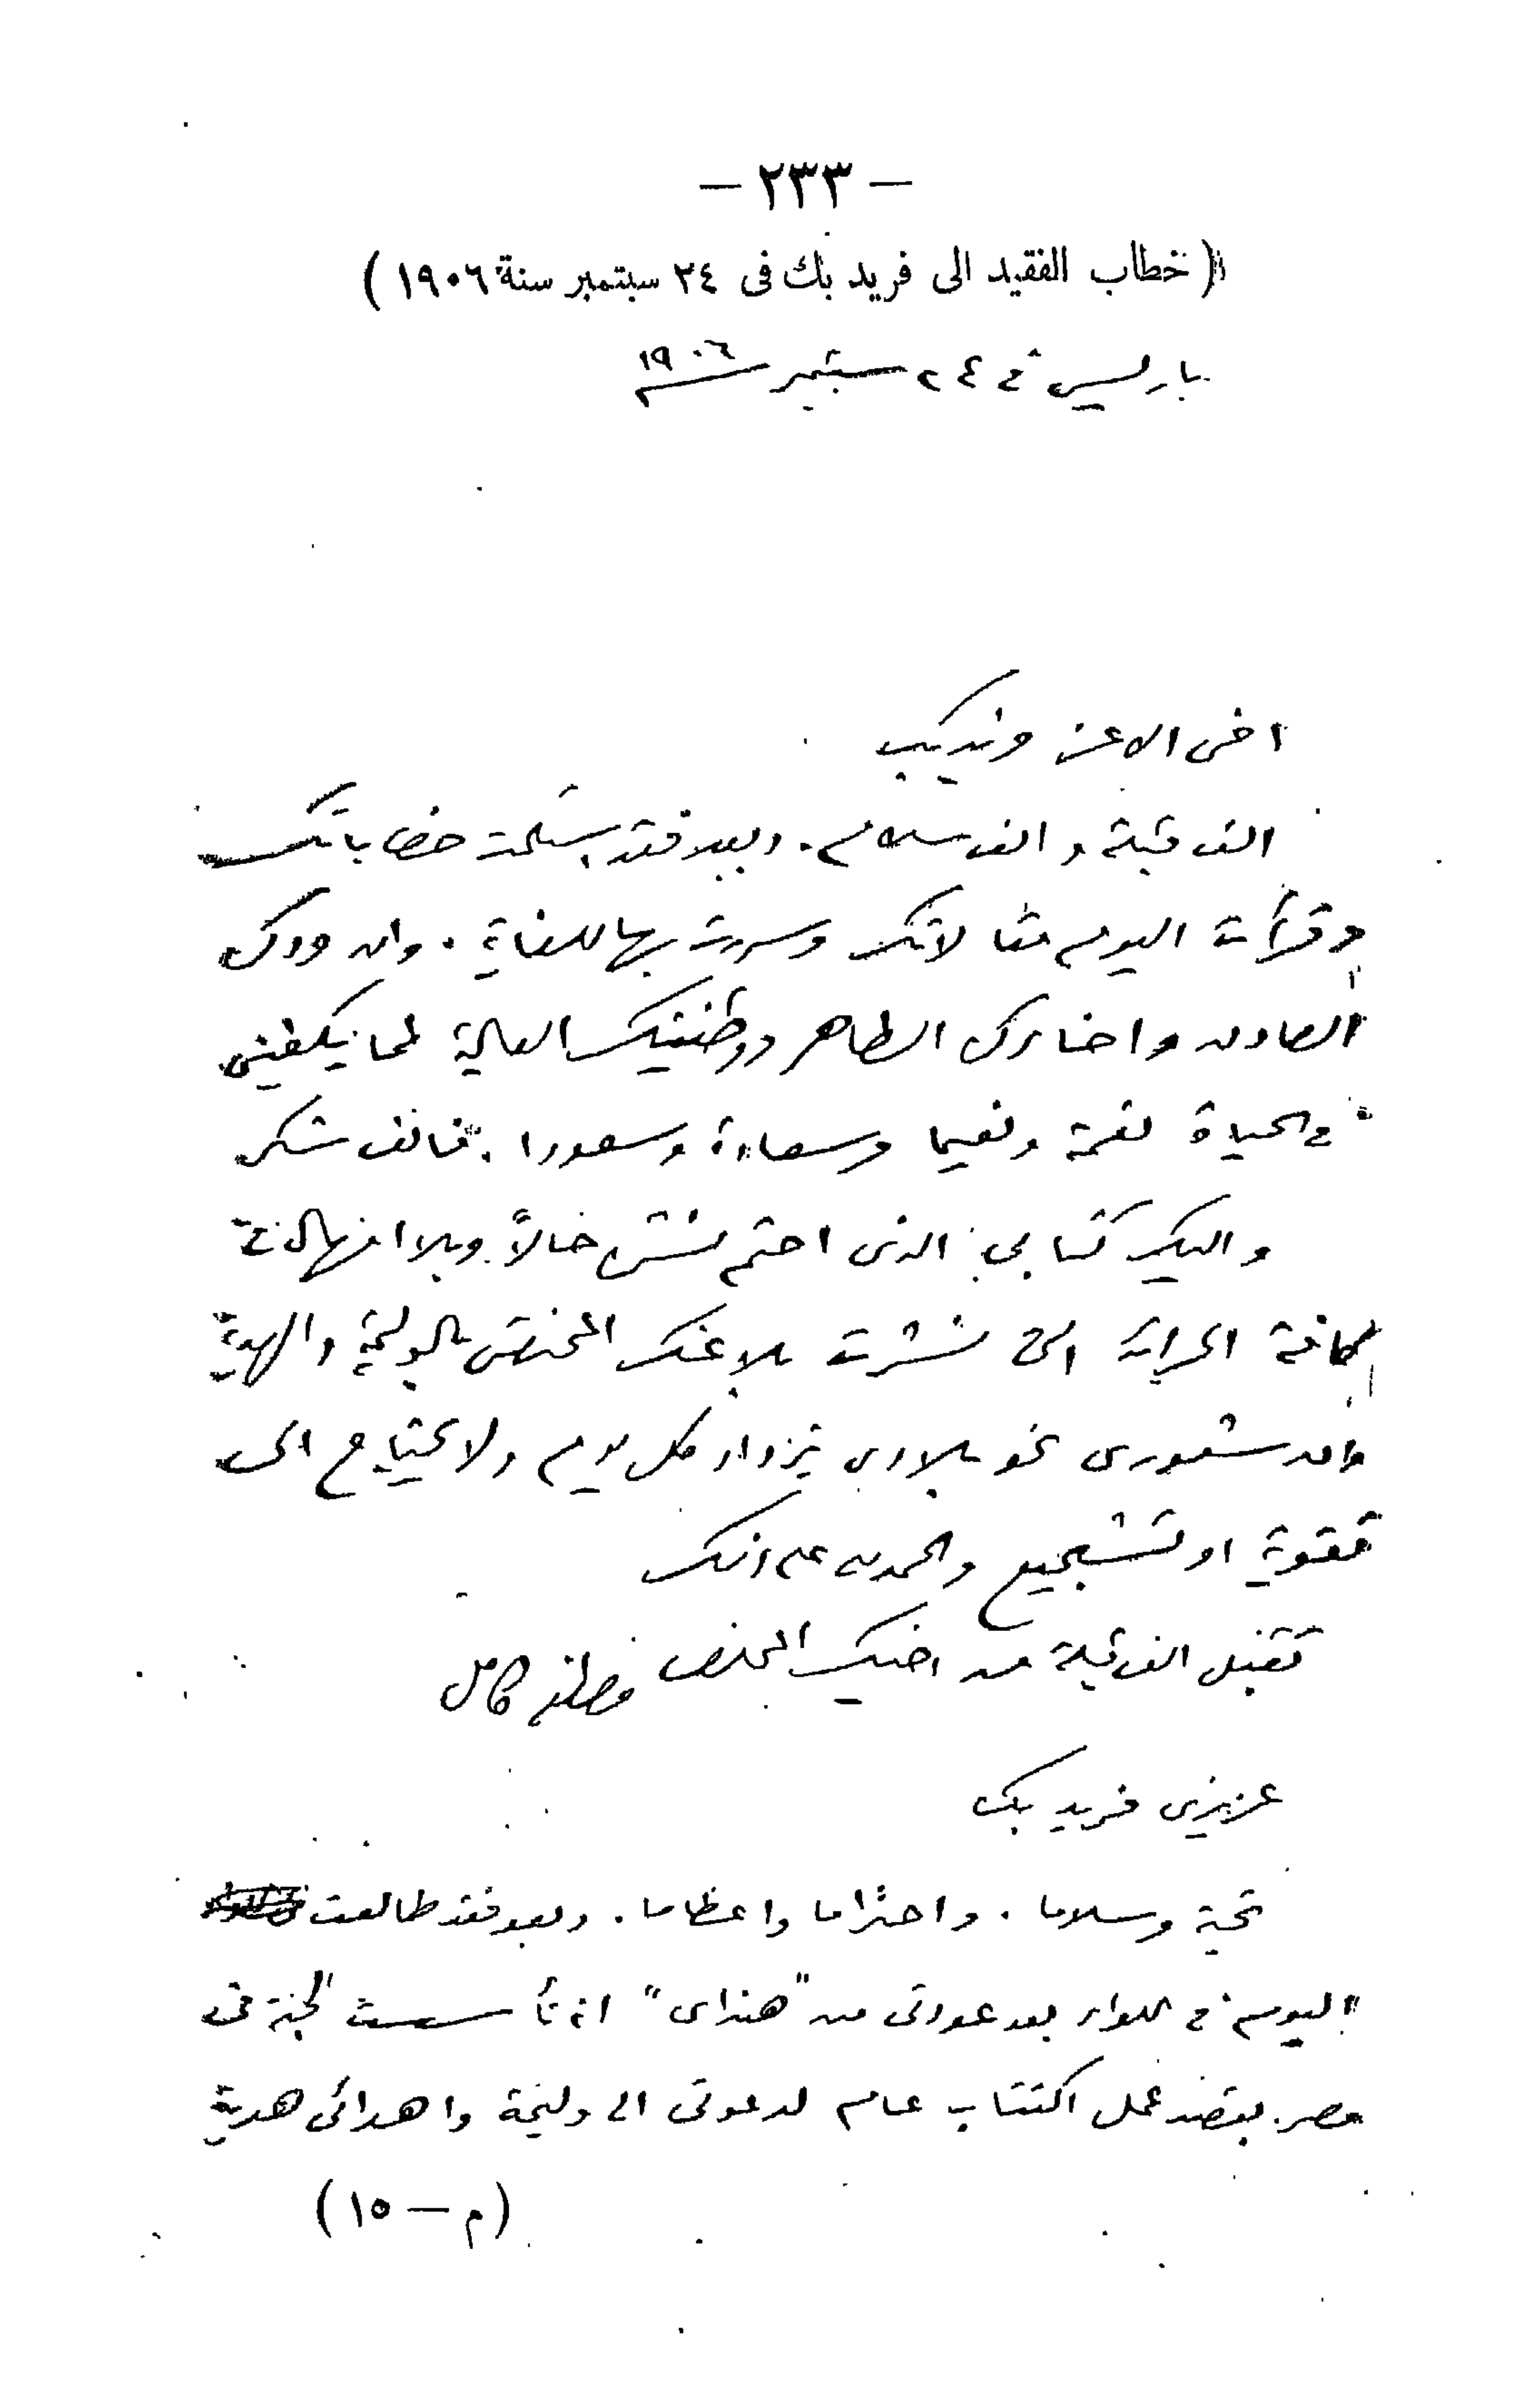 — ٢٣٣ —
( خطاب الفقيد الى فريد بك فى ٢٤ سبتمبر سنة ١٩٠٦ )
باريس فى ٢٤ سبتمبر سنة ١٩٠٦
اخى الاعز فريد بك
الف قبلة والف سلام . وبعد فقد استلمت خطاباتك
وقرأت اليوم مقالاتك وسررت بها للغاية . وان ودك
الصادق واخاءك الطاهر ووطنيتك العالية لمما يكفينى
فى الحياة نعمة ونعيما وسعادة وسعودا . فألف شكر
واليك كتابى الذى احتم نشره حالاً وبلا امهال فى
كافة الجرائد التى نشرت بلاغك المختص بالوليمة والهدية
وان شعورى نحو بلادى يزداد كل يوم ولا يحتاج الى
تقوية او تشجيع والحمد لله على ذلك
تقبل الف قبلة من اخيك المخلص مصطفى كامل
عزيزى فريد بك
تحية وسلاما . واحتراما واعظاما . وبعد فقد طالعت
اليوم فى اللواء بعد عودتى من "هنداى" انه تأسست لجنة فى
مصر بقصد عمل اكتتاب عام لدعوتى الى وليمة واهدائى هدية
( م — ١٥ )